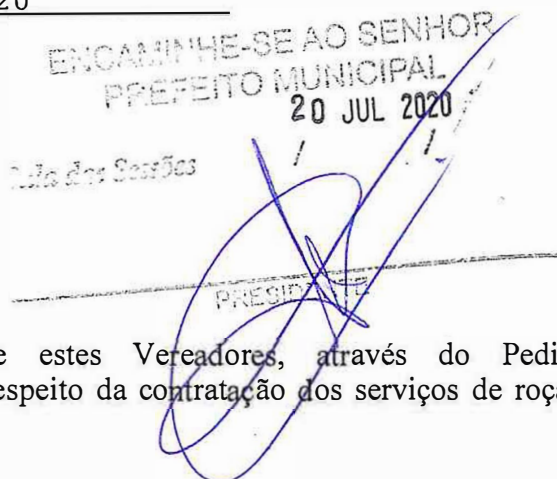 20
ENCAMINHE-SE AO SENHOR
PREFEITO MUNICIPAL
20 JUL 2020
Sala das Sessões / /
PRESIDENTE
e estes Vereadores, através do Pedi
espeito da contratação dos serviços de roça